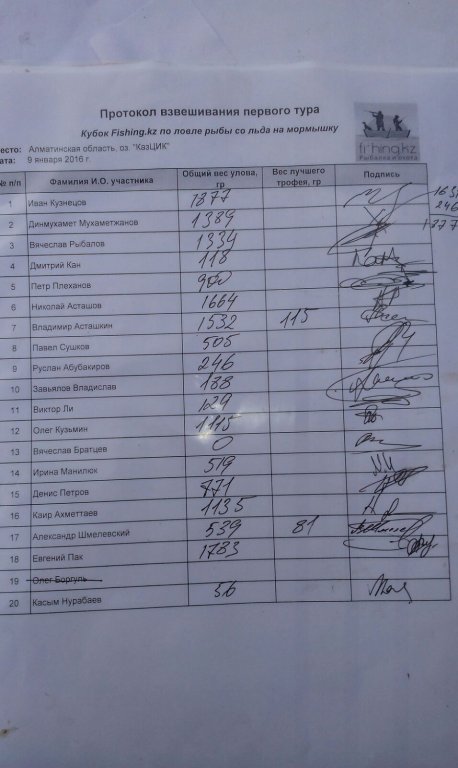 Протокол взвешивания первого тура
Кубок Fishing.kz по ловле рыбы со льда на мормышку
fishing.kz
Рыбалка и охота
есто: Алматинская область, оз. "КазЦИК"
ата: 9 января 2016 г.
№ п/п Фамилия И.О. участника Общий вес улова, гр Вес лучшего трофея, гр Подпись
1 Иван Кузнецов 1877
246
2 Динмухамет Мухаметжанов 1389
3 Вячеслав Рыбалов 1334
4 Дмитрий Кан 118
5 Петр Плеханов
6 Николай Асташов 1664
7 Владимир Асташкин 1532 115
8 Павел Сушков 505
9 Руслан Абубакиров 246
10 Завьялов Владислав 188
11 Виктор Ли 129
12 Олег Кузьмин 1115
13 Вячеслав Братцев 0
14 Ирина Манилюк 519
15 Денис Петров 771
16 Каир Ахметтаев 1135
17 Александр Шмелевский 539 81
18 Евгений Пак 1783
19 Олег Боргуль
20 Касым Нурабаев 56